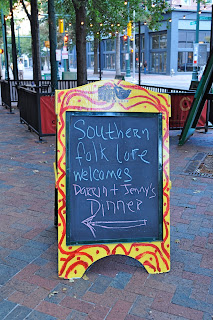 Southern
folk lore
welcomes
Darrin + Jenny's
Dinner